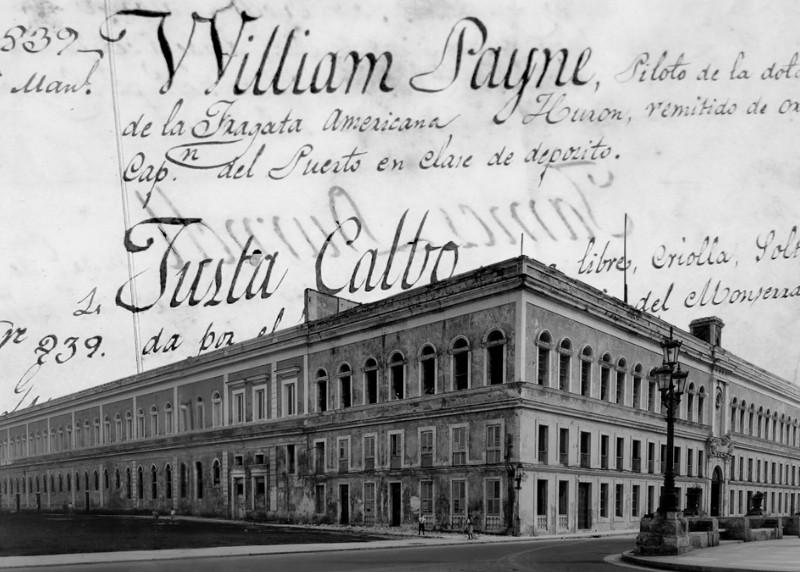 839
William Payne, Piloto de la dota
de la Fragata Americana, Huron, remitido de or
Cap.n del Puerto en clase de deposito.
Justa Calbo
libre, Criolla, Solt
del Monserra
839. da por el